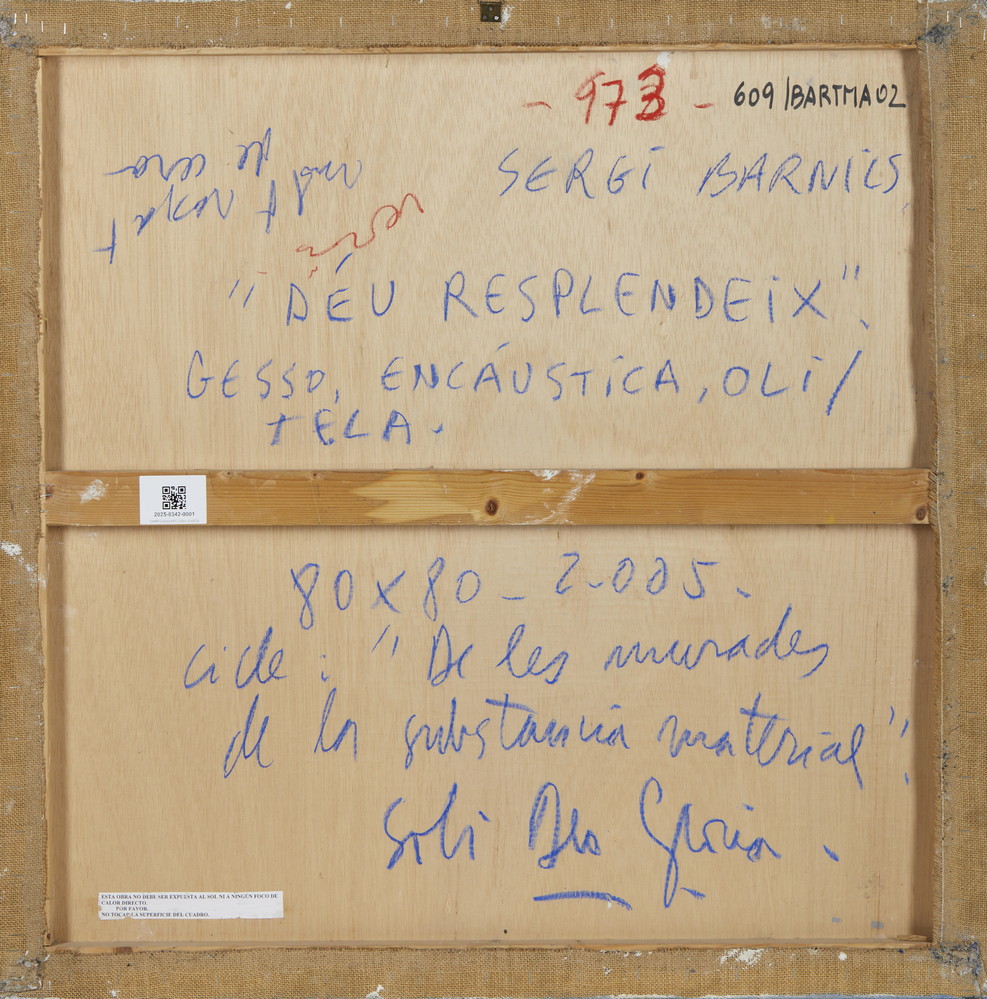 - 973 -
609/BARTMA02
SERGI BARNILS
"DÉU RESPLENDEIX".
GESSO, ENCÁUSTICA, OLI/
TELA.
2025-0342-0001
80X80 - 2.005 -
cicle: "De les murades
de la substancia material".
Soli Deo Gloria.
ESTA OBRA NO DEBE SER EXPUESTA AL SOL NI A NINGÚN FOCO DE
CALOR DIRECTO.
POR FAVOR.
NO TOCAR LA SUPERFICIE DEL CUADRO.
de cera